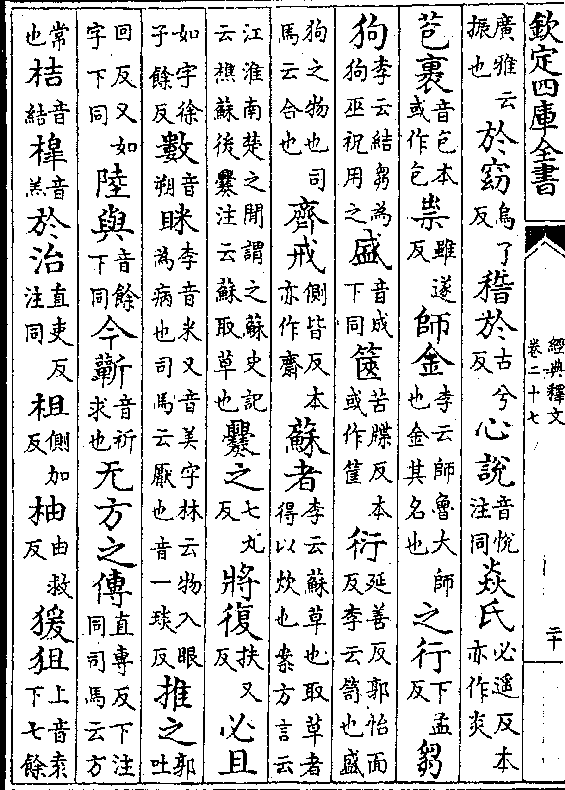 欽定四庫全書
經典釋文
卷二十七
二十
廣雅云振也於窈烏了反稽於古兮反心說音悅注同焱氏必遥反本亦作炎
苞裹音包本或作包祟雖遂反師金李云師魯大師也金其名也之行下孟反芻
狗李云結芻為狗巫祝用之盛音成下同篋苦牒反本或作筐衍延善反郭怡面反李云笥也盛
狗之物也司馬云合也齊戒側皆反本亦作齋蘇者李云蘇草也取草者得以炊也案方言云
江淮南楚之間謂之蘇史記云樵蘇後爨注云蘇取草也爨之七丸反將復扶又反必且
如字徐子餘反數音朔眯李音米又音美字林云物入眼為病也司馬云厭也音一琰反推之郭吐
回反又如字下同陸與音餘下同今蘄音祈求也无方之傳直專反下注同司馬云方
常也桔音結槹音羔於治直吏反注同柤側加反柚由救反猨狙上音袁下七餘